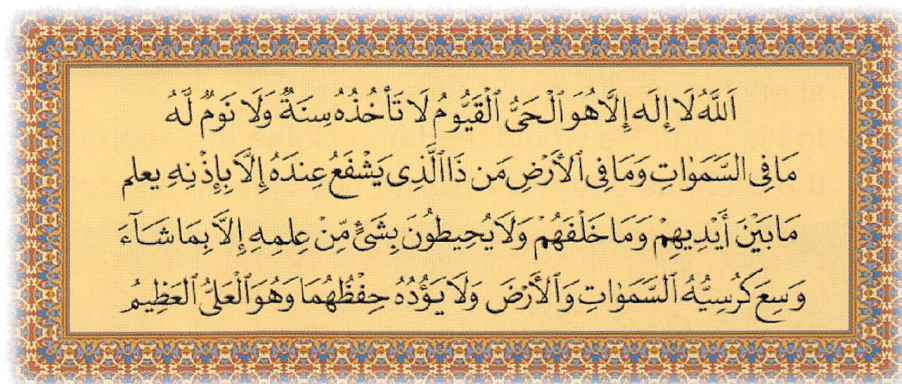 اَللَّهُ لَا إِلَه إِلَّا هُوَ اَلْحَىُّ اَلْقَيُّومُ لَا تَأْخُذُهُ سِنَةٌ وَلَا نَوْمٌ لَّهُ
مَا فِى السَّمَوَاتِ وَمَا فِى الْأَرْضِ مَن ذَا الَّذِى يَشْفَعُ عِندَهُ إِلَّا بِإِذْنِهِ يعلم
مَا بَيْنَ أَيْدِيهِمْ وَمَا خَلْفَهُمْ وَلَا يُحِيطُونَ بِشَىْءٍ مِّنْ عِلْمِهِ إِلَّا بِمَا شَآءَ
وَسِعَ كُرْسِيُّهُ السَّمَوَاتِ وَالْأَرْضَ وَلَا يَؤُدُهُ حِفْظُهُمَا وَهُوَ الْعَلِىُّ الْعَظِيمُ